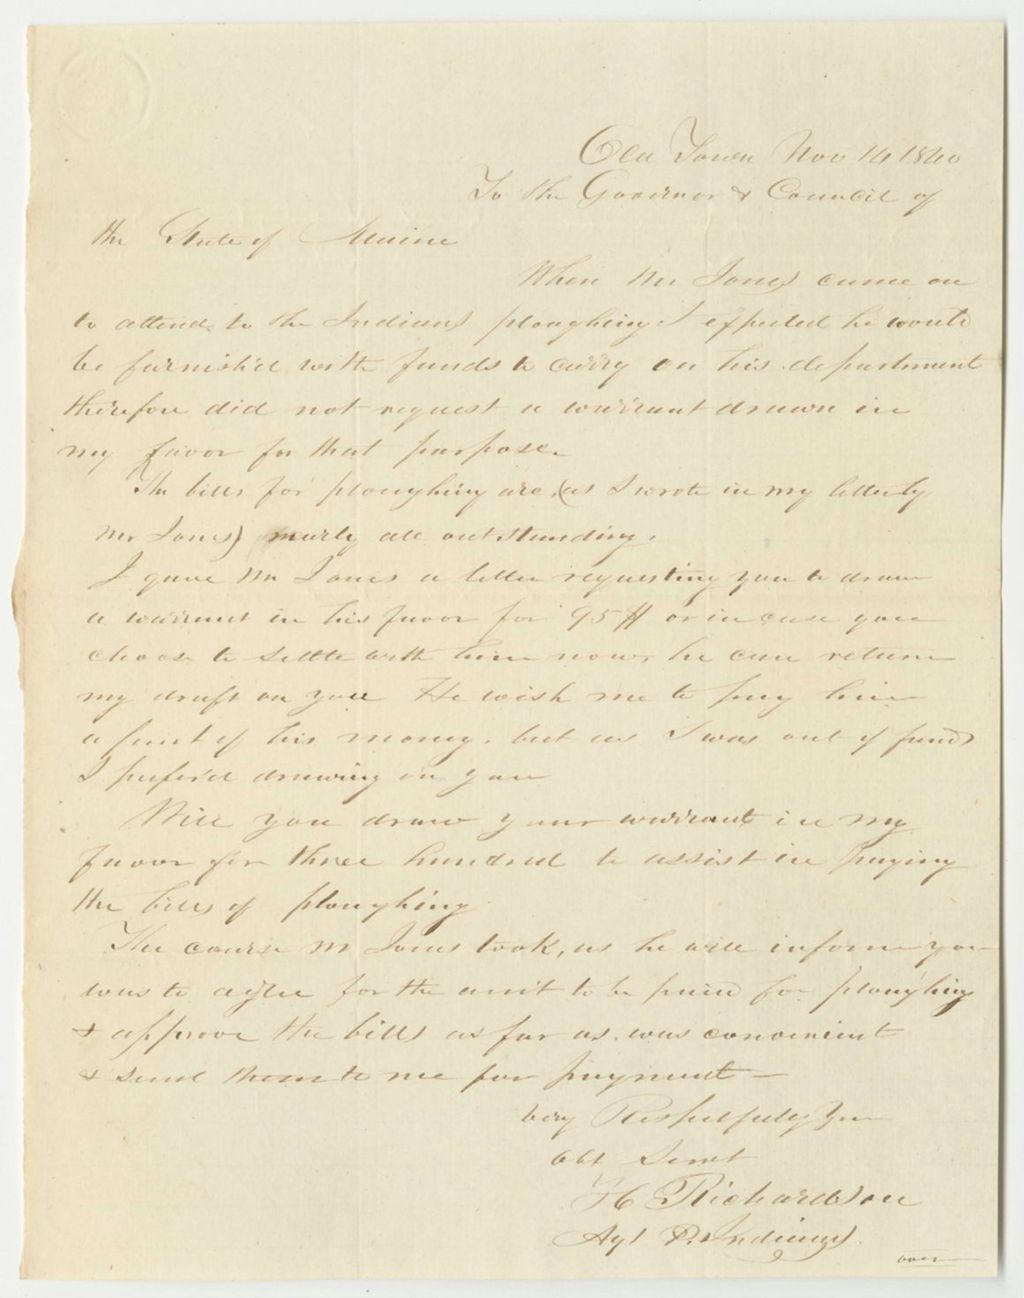 Old Town Nov 14 1840
To the Governor & Council of
the State of Maine
When Mr Jones came on
to attend to the Indians ploughing I expected he would
be furnish'd with funds to carry on his department
therefore did not request a warrant drawn in
my favor for that purpose.
The bills for ploughing are, (as I wrote in my letter by
Mr Jones) nearly all outstanding.
I gave Mr Jones a letter requesting you to draw
a warrant in his favor for 95 or in case you
choose to settle with him now, he can return
my draft on you He wish me to pay him
a part of his money, but as I was out of funds
I prefer'd drawing on you
Will you draw your warrant in my
favor for three hundred to assist in paying
the bills of ploughing
The course Mr Jones took, as he will inform you
was to agree for the amt to be paid for ploughing
& approve the bills as far as was convenient
& send them to me for payment —
Very Respectfully Your
Obt Servt
H Richardson
Agt P. Indians.
over